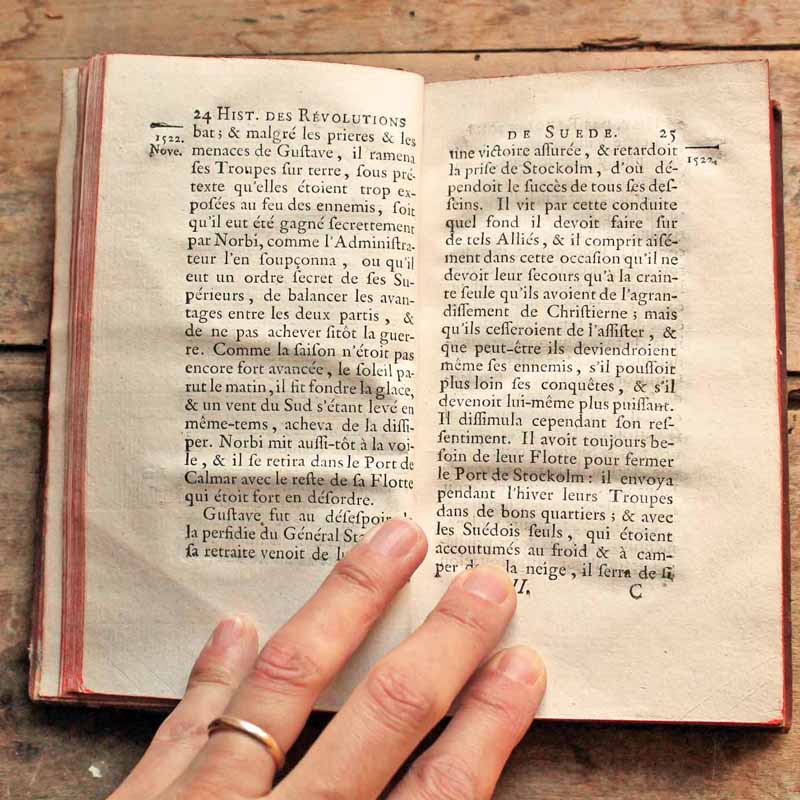 24 HIST. DES RÉVOLUTIONS
1522.
Nove.
bat ; & malgré les prieres & les
menaces de Guſtave , il ramena
ſes Troupes ſur terre , ſous pré-
texte qu'elles étoient trop ex-
poſées au feu des ennemis , ſoit
qu'il eut été gagné ſecrettement
par Norbi, comme l'Adminiſtra-
teur l'en ſoupçonna , ou qu'il
eut un ordre ſecret de ſes Su-
périeurs , de balancer les avan-
tages entre les deux partis , &
de ne pas achever ſitôt la guer-
re. Comme la ſaiſon n'étoit pas
encore fort avancée, le ſoleil pa-
rut le matin, il fit fondre la glace,
& un vent du Sud s'étant levé en
même-tems , acheva de la diſſi-
per. Norbi mit auſſi-tôt à la voi-
le , & il ſe retira dans le Port de
Calmar avec le reſte de ſa Flotte
qui étoit fort en déſordre.
Guſtave fut au déſeſpoir
la perfidie du Général
ſa retraite venoit de
DE SUEDE. 25
1522.
une victoire aſſurée , & retardoit
la priſe de Stockolm , d'où dé-
pendoit le ſuccès de tous ſes deſ-
ſeins. Il vit par cette conduite
quel fond il devoit faire ſur
de tels Alliés , & il comprit aiſé-
ment dans cette occaſion qu'il ne
devoit leur ſecours qu'à la crain-
te ſeule qu'ils avoient de l'agran-
diſſement de Chriſtierne ; mais
qu'ils ceſſeroient de l'aſſiſter , &
que peut-être ils deviendroient
même ſes ennemis , s'il pouſſoit
plus loin ſes conquêtes , & s'il
devenoit lui-même plus puiſſant.
Il diſſimula cependant ſon reſ-
ſentiment. Il avoit toujours be-
ſoin de leur Flotte pour fermer
le Port de Stockolm : il envoya
pendant l'hiver leurs Troupes
dans de bons quartiers ; & avec
les Suédois ſeuls , qui étoient
accoutumés au froid & à cam-
per la neige , il ſerra de ſi
II. C